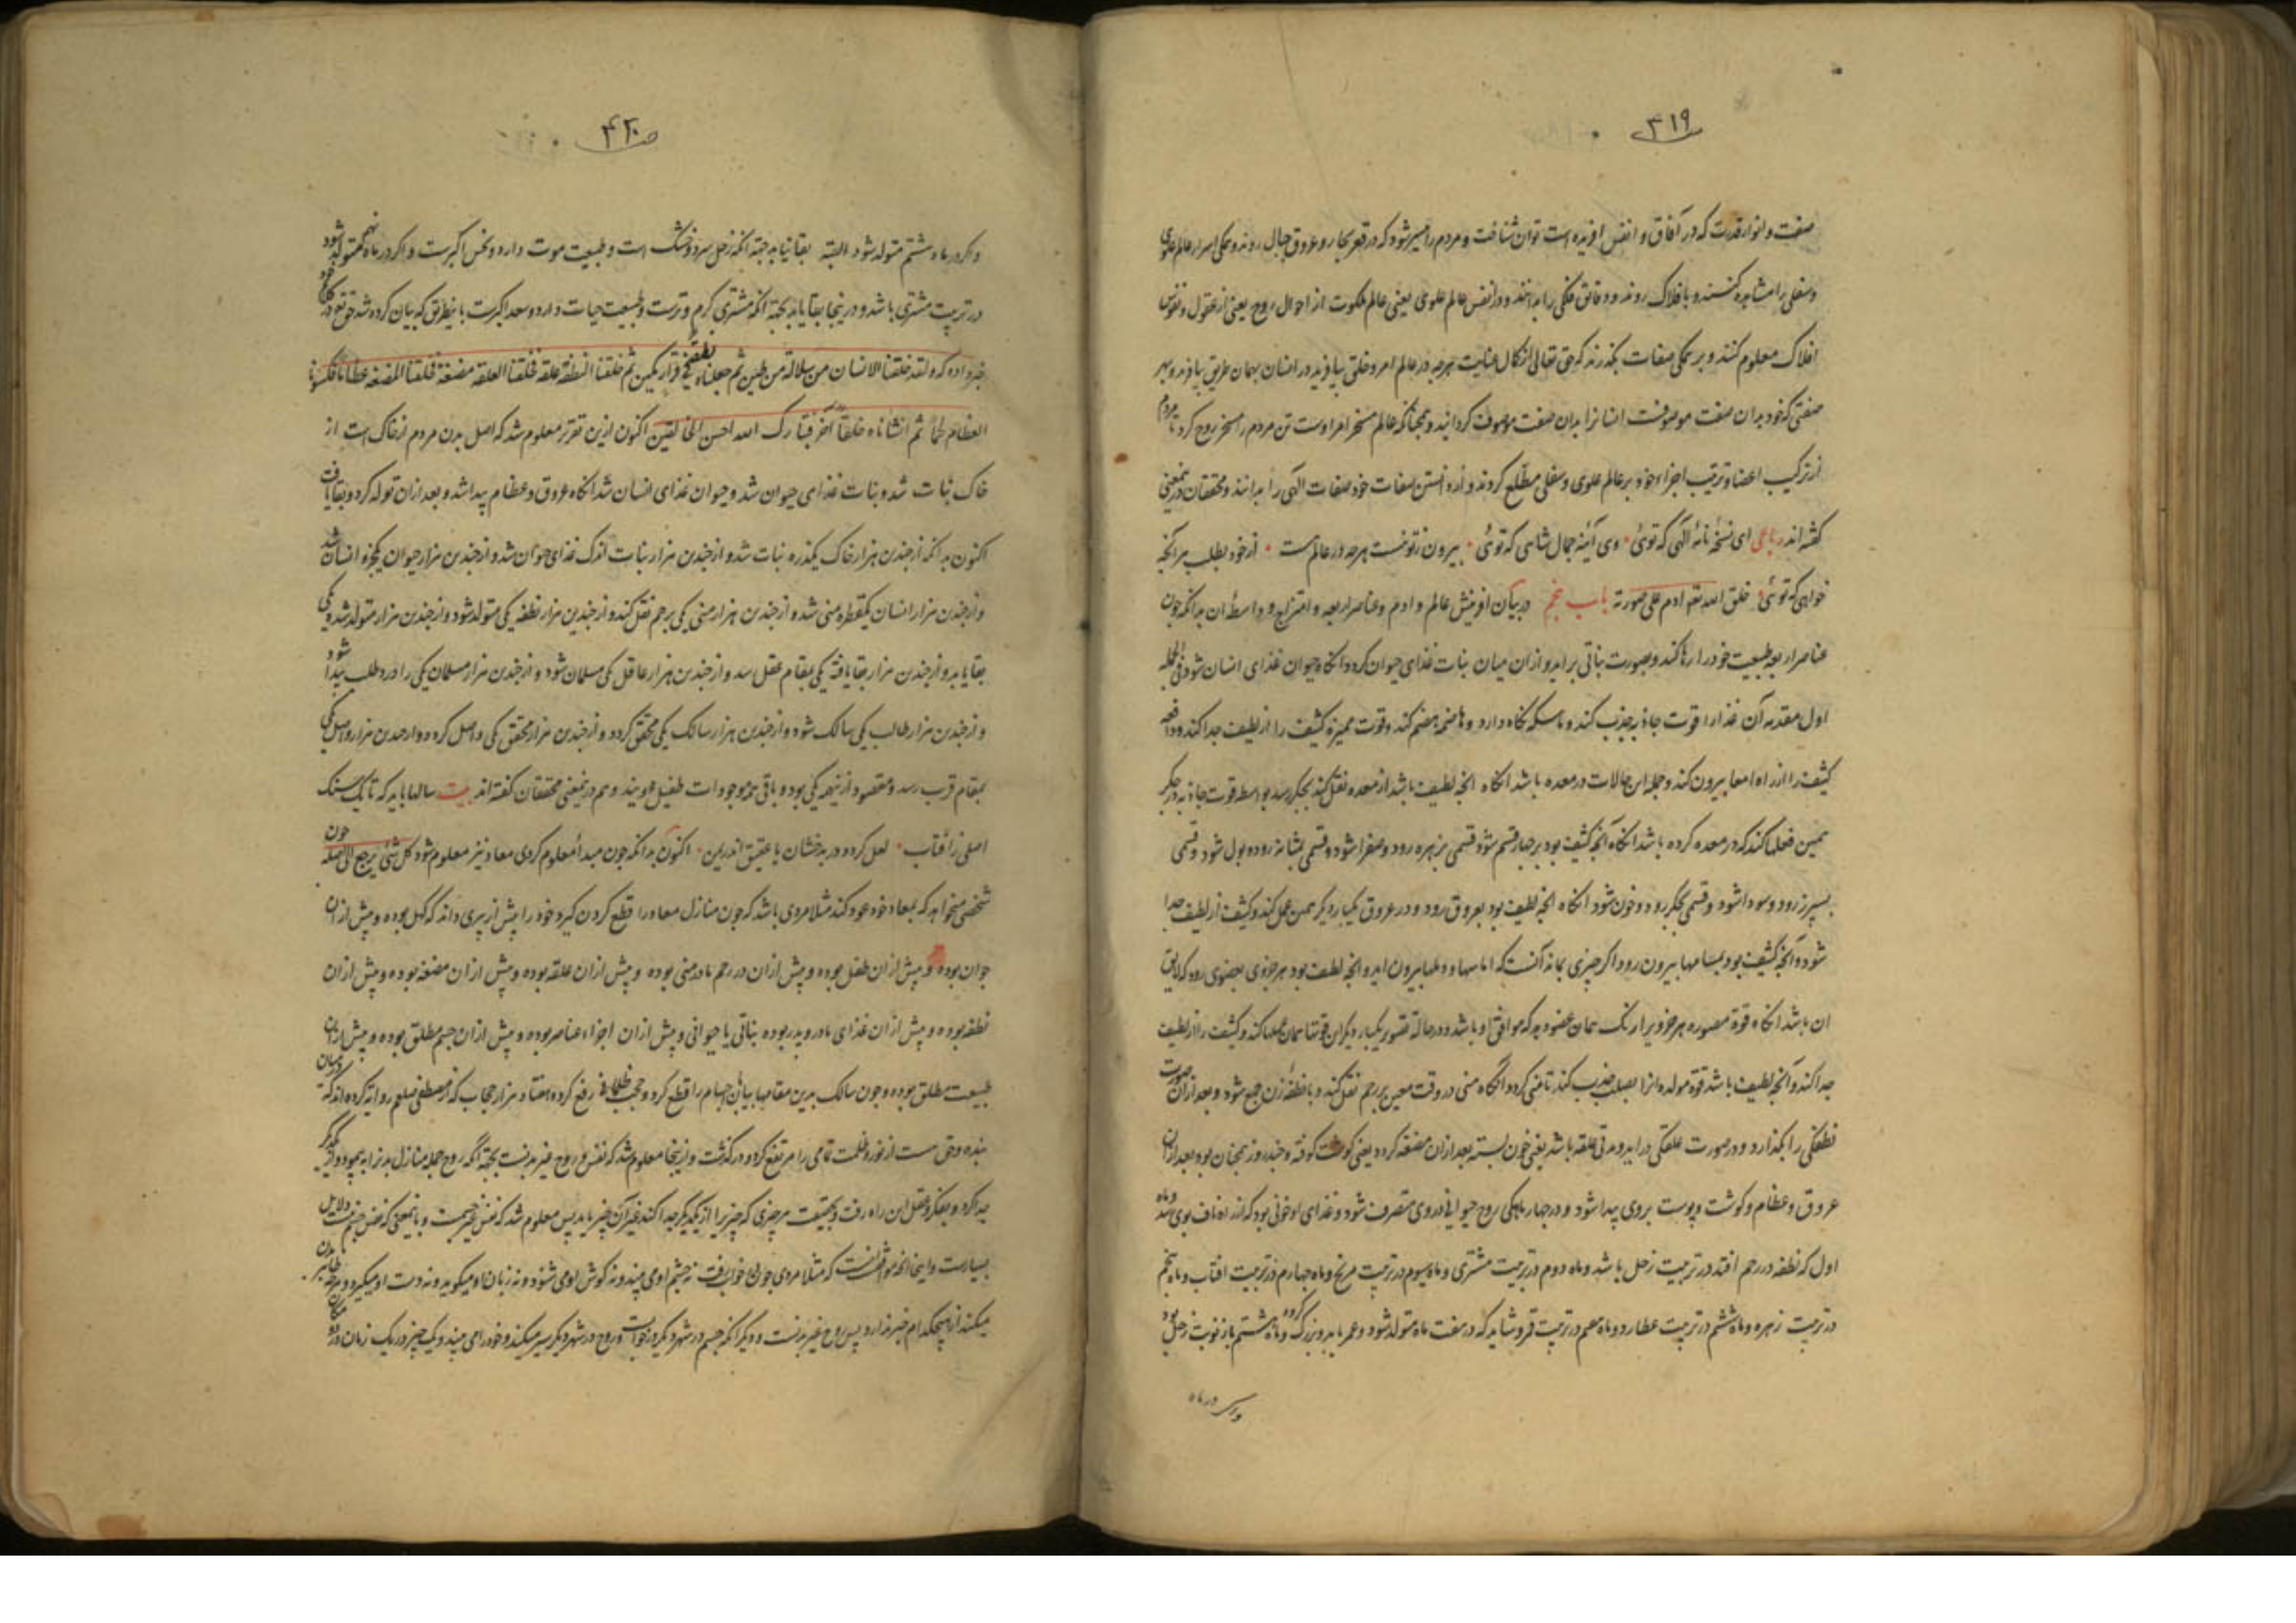 ص ۴۱۹
صفت و انوار قدرت که در آفاق و انفس افریده است توان شناخت و مردم را میسر شود که در قعر بحار و عروق جبال روند و همکی اسرار عالم علوی
و سفلی را مشاهده کنند و بافلاک روند و دقایق فلکی را بدانند و در انفس عالم علوی یعنی عالم ملکوت از احوال روح یعنی از عقول و نفوس
افلاک معلوم کنند و بر همکی صفات بکذرند که حق تعالی از کمال عنایت هرچه در عالم امر و خلق بیافرید در انسان بهمان طریق بیافرید و بهر
صفتی که خود بدان صفت موصوفست انسانرا بدان صفت موصوف کردانید و همچنانکه عالم مسخر امر اوست تن مردم را مسخر روح کرد تا مردم
از ترکیب اعضا و ترتیب اجزاء خود بر عالم علوی و سفلی مطلع کردند و از دانستن صفات خود صفات الهی را بدانند و محققان درینمعنی
کفته اند رباعی ای نسخهٔ نامهٔ الهی که توئی وی آینهٔ جمال شاهی که توئی بیرون ز تو نیست هرچه در عالم هست از خود بطلب هر آنچه
خواهی که توئی خلق الله تعه ادم علی صورته باب پنجم در بیان افرینش عالم و ادم و عناصر اربعه و امتزاج و واسطهٔ ان بدانکه چون
عناصر اربعه طبیعت خود را رها کنند و بصورت نباتی براید و ازان میان نبات غذای حیوان کردد انکاه حیوان غذای انسان شود فی الجمله
اول معده آن غذا را قوت جاذبه جذب کند و ماسکه نکاه دارد و هاضمه هضم کند و قوت ممیزه کثیف را از لطیف جدا کند و دافعه
کثیف را از راه امعا بیرون کند و جمله این حالات در معده باشد انکاه انچه لطیف باشد از معده نقل کند بجکر رسد بواسطه قوت جاذبه در جکر
همین فعلها کند که در معده کرده باشد انکاه آنچه کثیف بود بر چهار قسم شود قسمی بزهره رود و صفرا شود و قسمی بمثانه رود و بول شود و قسمی
بسپرز رود و سودا شود و قسمی بجکر رود و خون شود انکاه انچه لطیف بود بعروق رود و در عروق یکبار دیکر همین عمل کند و کثیف از لطیف جدا
شود و آنچه کثیف بود بمسامها بیرون رود اکر چیزی بماند آنست که اماسها و دملها بیرون اید و انچه لطیف بود هر جزوی بعضوی رود که لایق
ان باشد انکاه قوة مصوره هر جزو یرا رنک همان عضو دهد که موافق او باشد و در حالة تصویر یکبار دیکر این قوتها همان عملها کند و کثیف را از لطیف
جدا کند و آنچه لطیف باشد قوة مولده انرا بصلب جذب کند تا منی کردد و آنکاه منی در وقت معین برحم نقل کند و با نطفهٔ زن جمع شود و بعد ازان صورت
نطفکی را بکذارد و در صورت علقکی دراید و مدتی علقه باشد یعنی خون بسته بعد ازان مضغه کردد یعنی کوشت کوفته و چند روز همچنان بود بعد ازان
عروق و عظام و کوشت و پوست بروی پیدا شود و در چهار ماهکی روح حیوانی در وی متصرف شود و غذای او خونی بود که از راه ناف بوی رسد و ماه
اول که نطفه در رحم افتد در تربیت زحل باشد و ماه دوم در تربیت مشتری و ماه سیوم در تربیت مریخ و ماه چهارم در تربیت افتاب و ماه پنجم
در تربیت زهره و ماه ششم در تربیت عطارد و ماه هفتم در تربیت قمر و شاید که در هفت ماه متولد شود و عمر یابد و بزرک کردد و ماه هشتم باز نوبت زحل بود
و اکر در ماه
ص ۴۲۰
و اکر در ماه هشتم متولد شود البته بقا نیابد بجهة انکه زحل سرد و خشک است و طبیعت موت دارد و نحس اکبرست و اکر در ماه نهم متولد شود
در تربیت مشتری باشد و درینجا بقا یابد بجهة انکه مشتری کرم و ترست و طبیعت حیات دارد و سعد اکبرست باینطریق که بیان کرده شد حق تع در کلام خود
خبر داده که و لقد خلقنا الانسان من سلالة من طین ثم جعلناه نطفة فی قرار مکین ثم خلقنا النطفة علقة فخلقنا العلقة مضغة فخلقنا المضغة عظاما فکسونا
العظام لحما ثم انشاناه خلقا آخر فتبارک الله احسن الخالقین اکنون ازین تقریر معلوم شد که اصل بدن مردم از خاک است از
خاک نبات شد و نبات غذای حیوان شد و حیوان غذای انسان شد انکاه عروق و عظام پیدا شد و بعد ازان تولد کرد و بقا یافت
اکنون بدانکه از چندین هزار خاک یکذره نبات شد و از چندین هزار نبات اندک غذای حیوان شد و از چندین هزار حیوان یکجزو انسان شد
و از چندین هزار انسان یکقطره منی شد و از چندین هزار منی یکی برحم نقل کند و از چندین هزار نطفه یکی متولد شود و از چندین هزار متولد شده یکی
بقا یابد و از چندین هزار بقا یافته یکی بمقام عقل رسد و از چندین هزار عاقل یکی مسلمان شود و از چندین هزار مسلمان یکی را درد طلب پیدا شود
و از چندین هزار طالب یکی سالک شود و از چندین هزار سالک یکی محقق کردد و از چندین هزار محقق یکی واصل کردد و از چندین هزار واصل یکی
بمقام قرب رسد و مقصود از نیهمه یکی بود و باقی همه موجودات طفیل او یند و هم درینمعنی محققان کفته اند بیت سالها باید که تا یک سنک
اصلی ز آفتاب لعل کردد در بدخشان یا عقیق اندر یمن اکنون بدانکه چون مبدأ معلوم کردی معاد نیز معلوم شود کل شئ یرجع الی اصله چون
شخصی میخواهد که بمعاد خود عود کند مثلا مردی باشد که چون منازل معاد را قطع کردن کیرد خود را پیش از پیری داند که کهل بوده و پیش ازان
جوان بوده و پیش ازان طفل بوده و پیش ازان در رحم مادر منی بوده و پیش ازان علقه بوده و پیش ازان مضغه بوده و پیش ازان
نطفه بوده و پیش ازان غذای مادر و پدر بوده نباتی یا حیوانی و پیش ازان اجزاء عناصر بوده و پیش ازان جسم مطلق بوده و پیش ازان
طبیعت مطلق بوده و چون سالک بدین مقامها بیابان اجسام را قطع کرد و حجب ظلمانی رفع کرد و هفتاد هزار حجاب که از مصطفی صلعم روایة کرده اند که میان
بنده و حق است از نور و ظلمت تمامی را مرتفع کرد و درکذشت و از ینجا معلوم شد که نفس و روح غیر بدنست بجهة آنکه روح جمله منازل بدنرا به پیمود و از یکدیکر
جدا کرد و بفکر و عقل این راه رفت و بحقیقت هر چیزی که چیزیرا از یکدیکر جدا کند غیر آن چیز باید پس معلوم شد که نفس غیر جسمست و باینمعنی که نفس غیر جسمست دلایل
بسیارست و اینجا انچه موافق است انست که مثلا مردی چون در خواب رفت نه چشم او می بیند و نه کوش او می شنود و نه زبان او میکوید و نه دست او میکیرد و هرچه ظاهر بدن
میکند از هیچکدام خبر ندارد پس روح غیر بدنست و دیکر انکه جسم در شهر دیکر در خوابست و روح در شهر دیکر سیر میکند و خود را می بیند و یک چیز در یک زمان در دو مکان